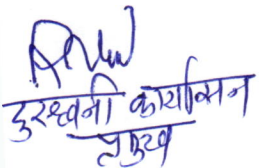 दुरध्वनी कार्यासन
प्रमुख